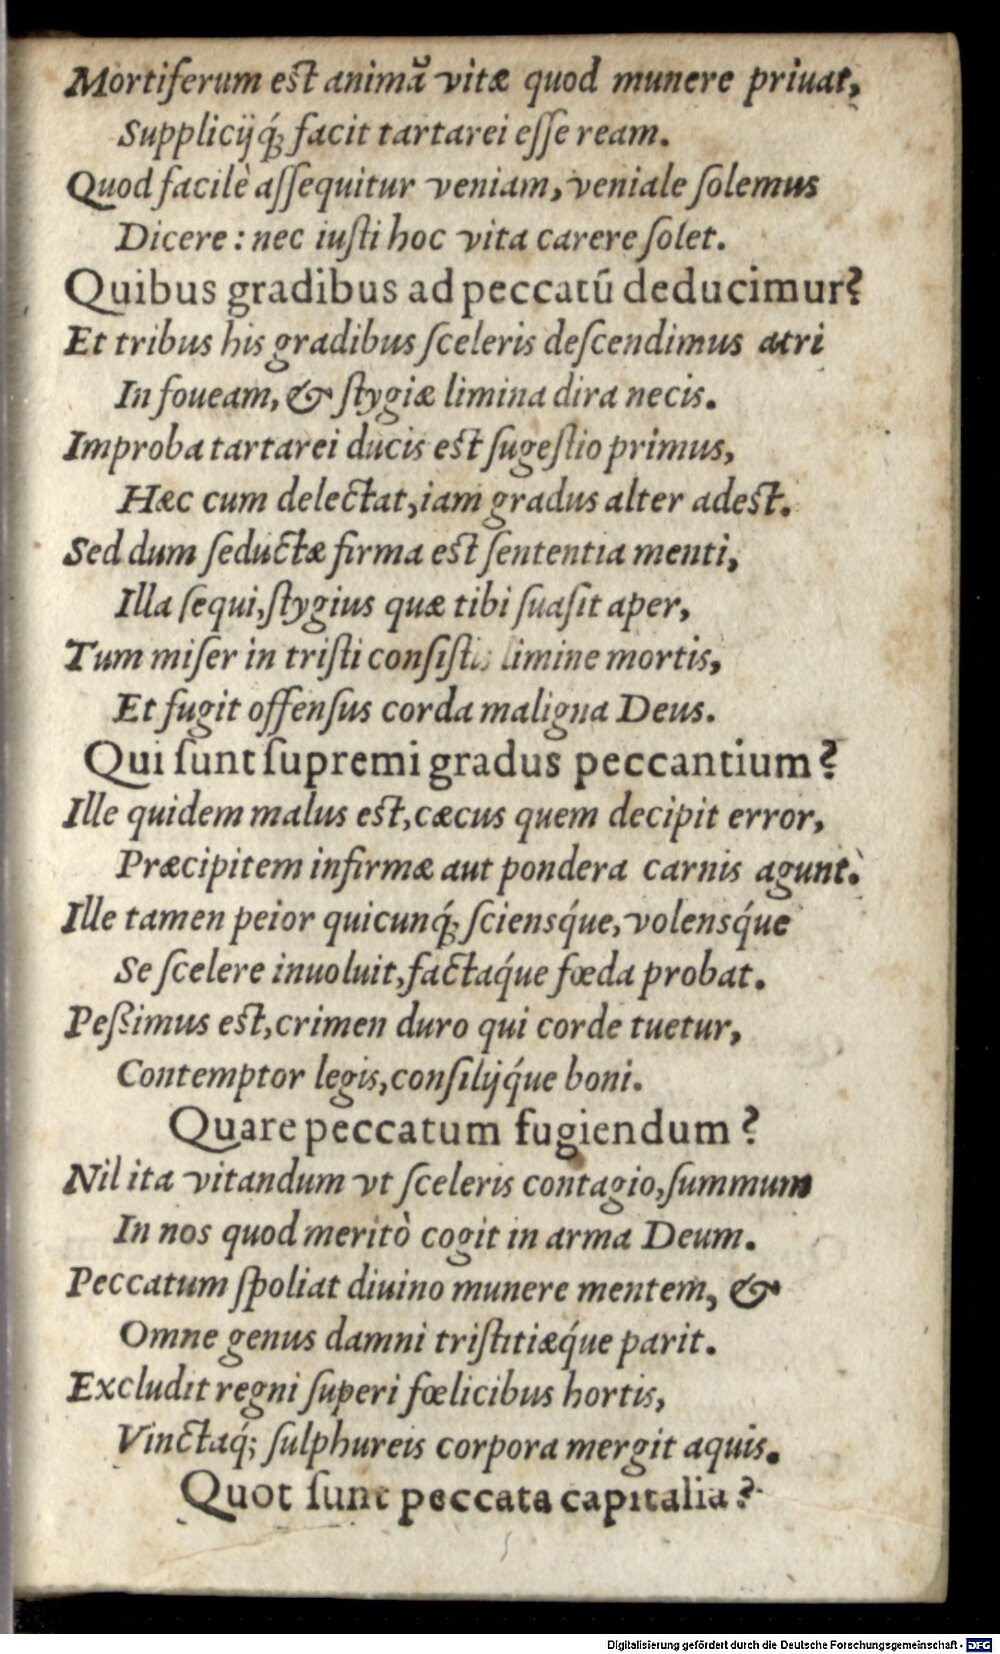 Mortiferum est animã vitæ quod munere priuat,
Supplicijq́; facit tartarei eſſe ream.
Quod facilè aſſequitur veniam, veniale ſolemus
Dicere: nec iuſti hoc vita carere ſolet.
Quibus gradibus ad peccatũ deducimur?
Et tribus his gradibus ſceleris deſcendimus atri
In foueam, & ſtygiæ limina dira necis.
Improba tartarei ducis est ſugeſtio primus,
Hæc cum delectat, iam gradus alter adest.
Sed dum ſeductæ firma est ſententia menti,
Illa ſequi, ſtygius quæ tibi ſuaſit aper,
Tum miſer in triſti conſiſtis limine mortis,
Et fugit offenſus corda maligna Deus.
Qui ſunt ſupremi gradus peccantium?
Ille quidem malus est, cæcus quem decipit error,
Præcipitem infirmæ aut pondera carnis agunt.
Ille tamen peior quicunq́; ſciensq́ue, volensq́ue
Se ſcelere inuoluit, factaq́ue fœda probat.
Peßimus est, crimen duro qui corde tuetur,
Contemptor legis, conſilijq́ue boni.
Quare peccatum fugiendum?
Nil ita vitandum vt ſceleris contagio, ſummum
In nos quod meritò cogit in arma Deum.
Peccatum ſpoliat diuino munere mentem, &
Omne genus damni triſtitiæq́ue parit.
Excludit regni ſuperi fœlicibus hortis,
Vinctaq́; ſulphureis corpora mergit aquis.
Quot ſunt peccata capitalia?
Digitalisierung gefördert durch die Deutsche Forschungsgemeinschaft - DFG